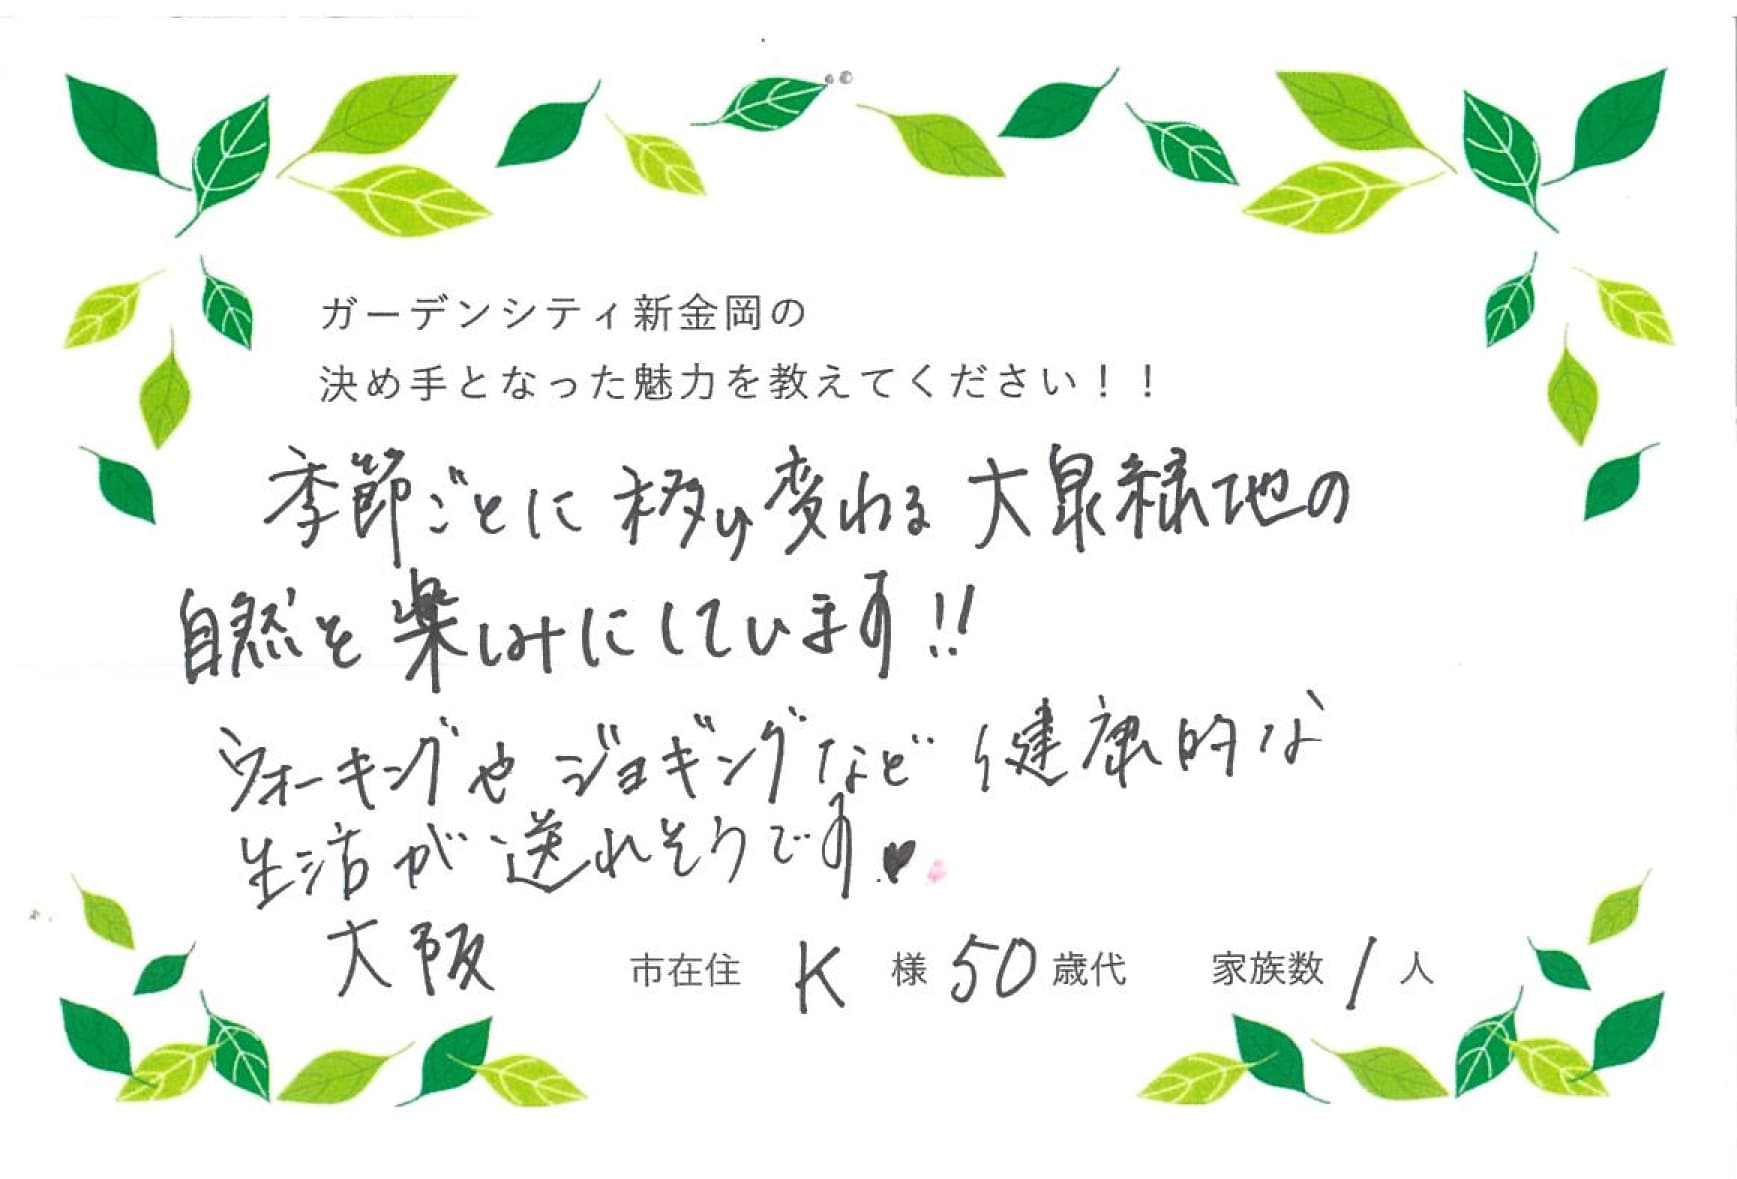 ガーデンシティ新金岡の
決め手となった魅力を教えてください！！
季節ごとに移り変わる大泉緑地の
自然を楽しみにしています!!
ウォーキングやジョギングなど健康的な
生活が送れそうです♥
大阪 市在住 K 様 50 歳代 家族数 1 人